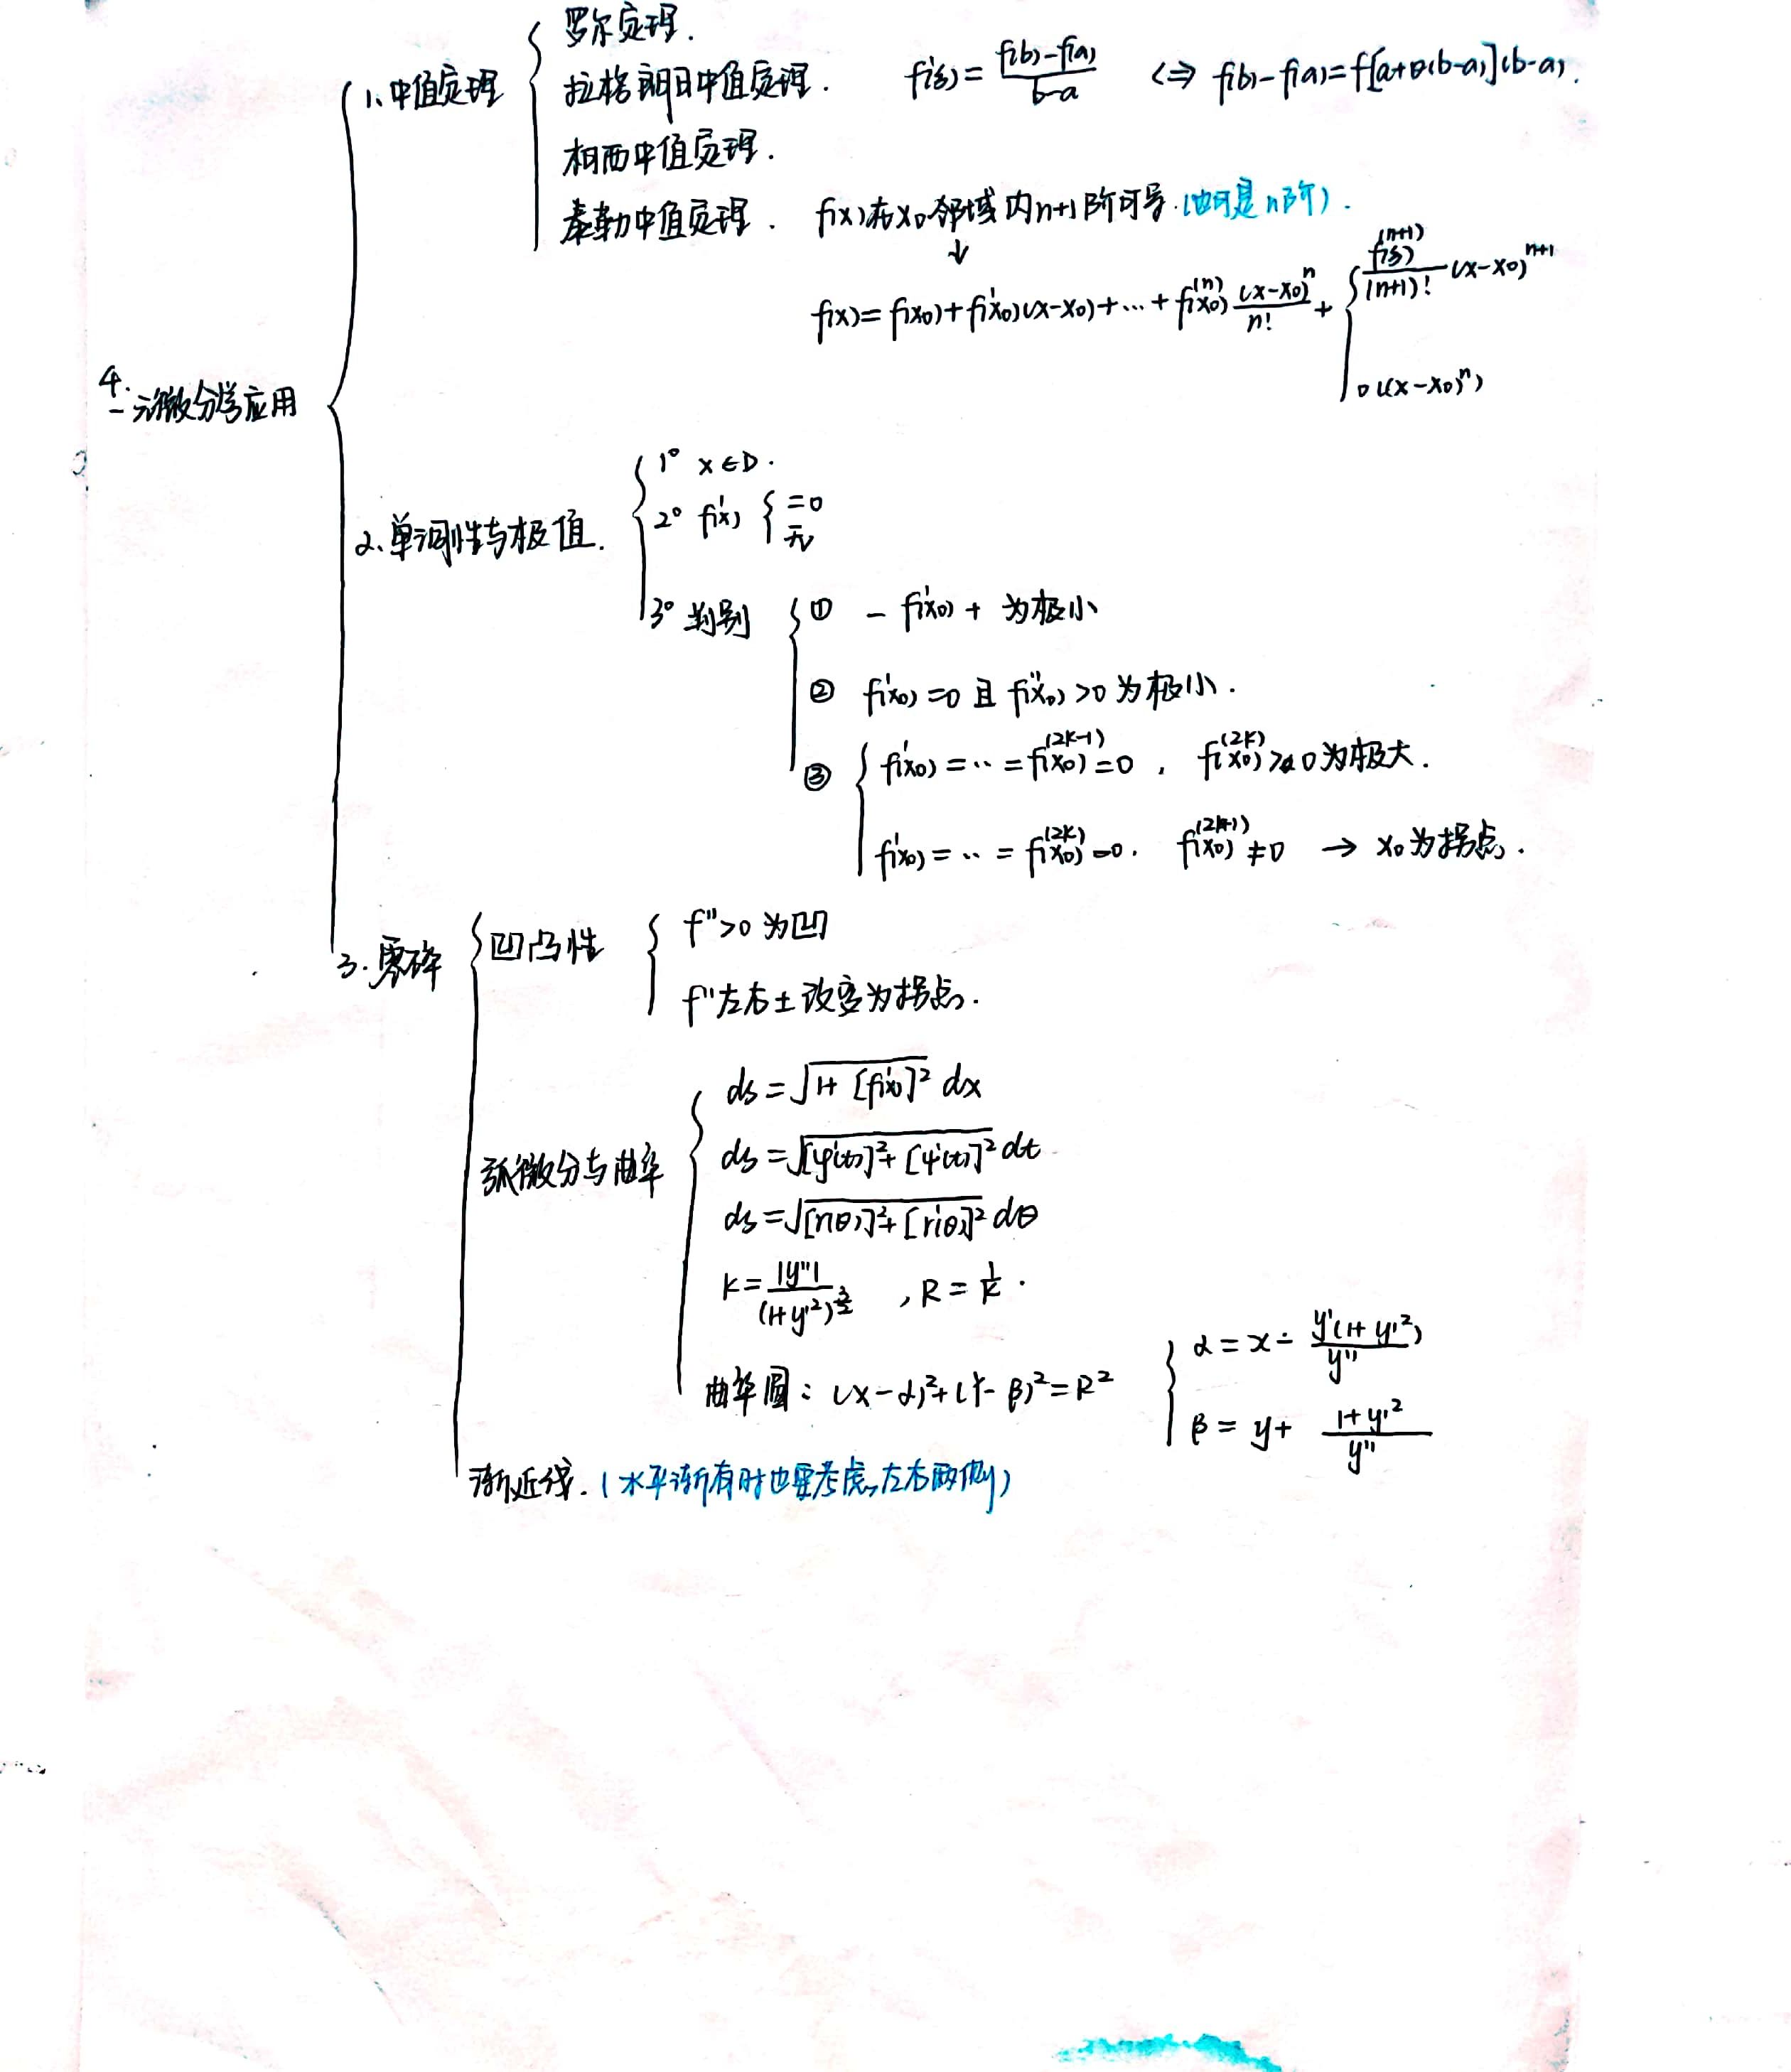 罗尔定理.
1、中值定理
拉格朗日中值定理. f'(ξ)=\frac{f(b)-f(a)}{b-a} <=> f(b)-f(a)=f[a+θ(b-a)](b-a).
柯西中值定理.
泰勒中值定理. f(x)在x0邻域内n+1阶可导.(也可是n阶).
↓
f(x)=f(x0)+f'(x0)(x-x0)+…+f^{(n)}(x0)\frac{(x-x0)^n}{n!}+{\frac{f^{(n+1)}(ξ)}{(n+1)!}(x-x0)^{n+1}
o((x-x0)^n)
4.
一元微分学应用
1° x∈D.
2、单调性与极值.
2° f'(x) { =0
无
3° 判别 ① - f'(x0) + 为极小
② f'(x0)=0 且 f''(x0)>0 为极小.
③ f'(x0)=…=f^{(2k-1)}(x0)=0, f^{(2k)}(x0) 0为极大.
f'(x0)=…=f^{(2k)}(x0)=0. f^{(2k+1)}(x0)≠0 → x0为拐点.
3.零碎
凹凸性 { f''>0 为凹
f''左右±改变为拐点.
弧微分与曲率
ds=\sqrt{1+[f'(x)]^2} dx
ds=\sqrt{[φ'(t)]^2+[ψ'(t)]^2} dt
ds=\sqrt{[r(θ)]^2+[r'(θ)]^2} dθ
k=\frac{|y''|}{(1+y'^2)^{\frac{3}{2}}}, R=\frac{1}{k}.
曲率圆:(x-α)^2+(Y-β)^2=R^2 { α=x-\frac{y'(1+y'^2)}{y''}
β=y+\frac{1+y'^2}{y''}
渐近线.(水平渐有时也要考虑左右两侧)